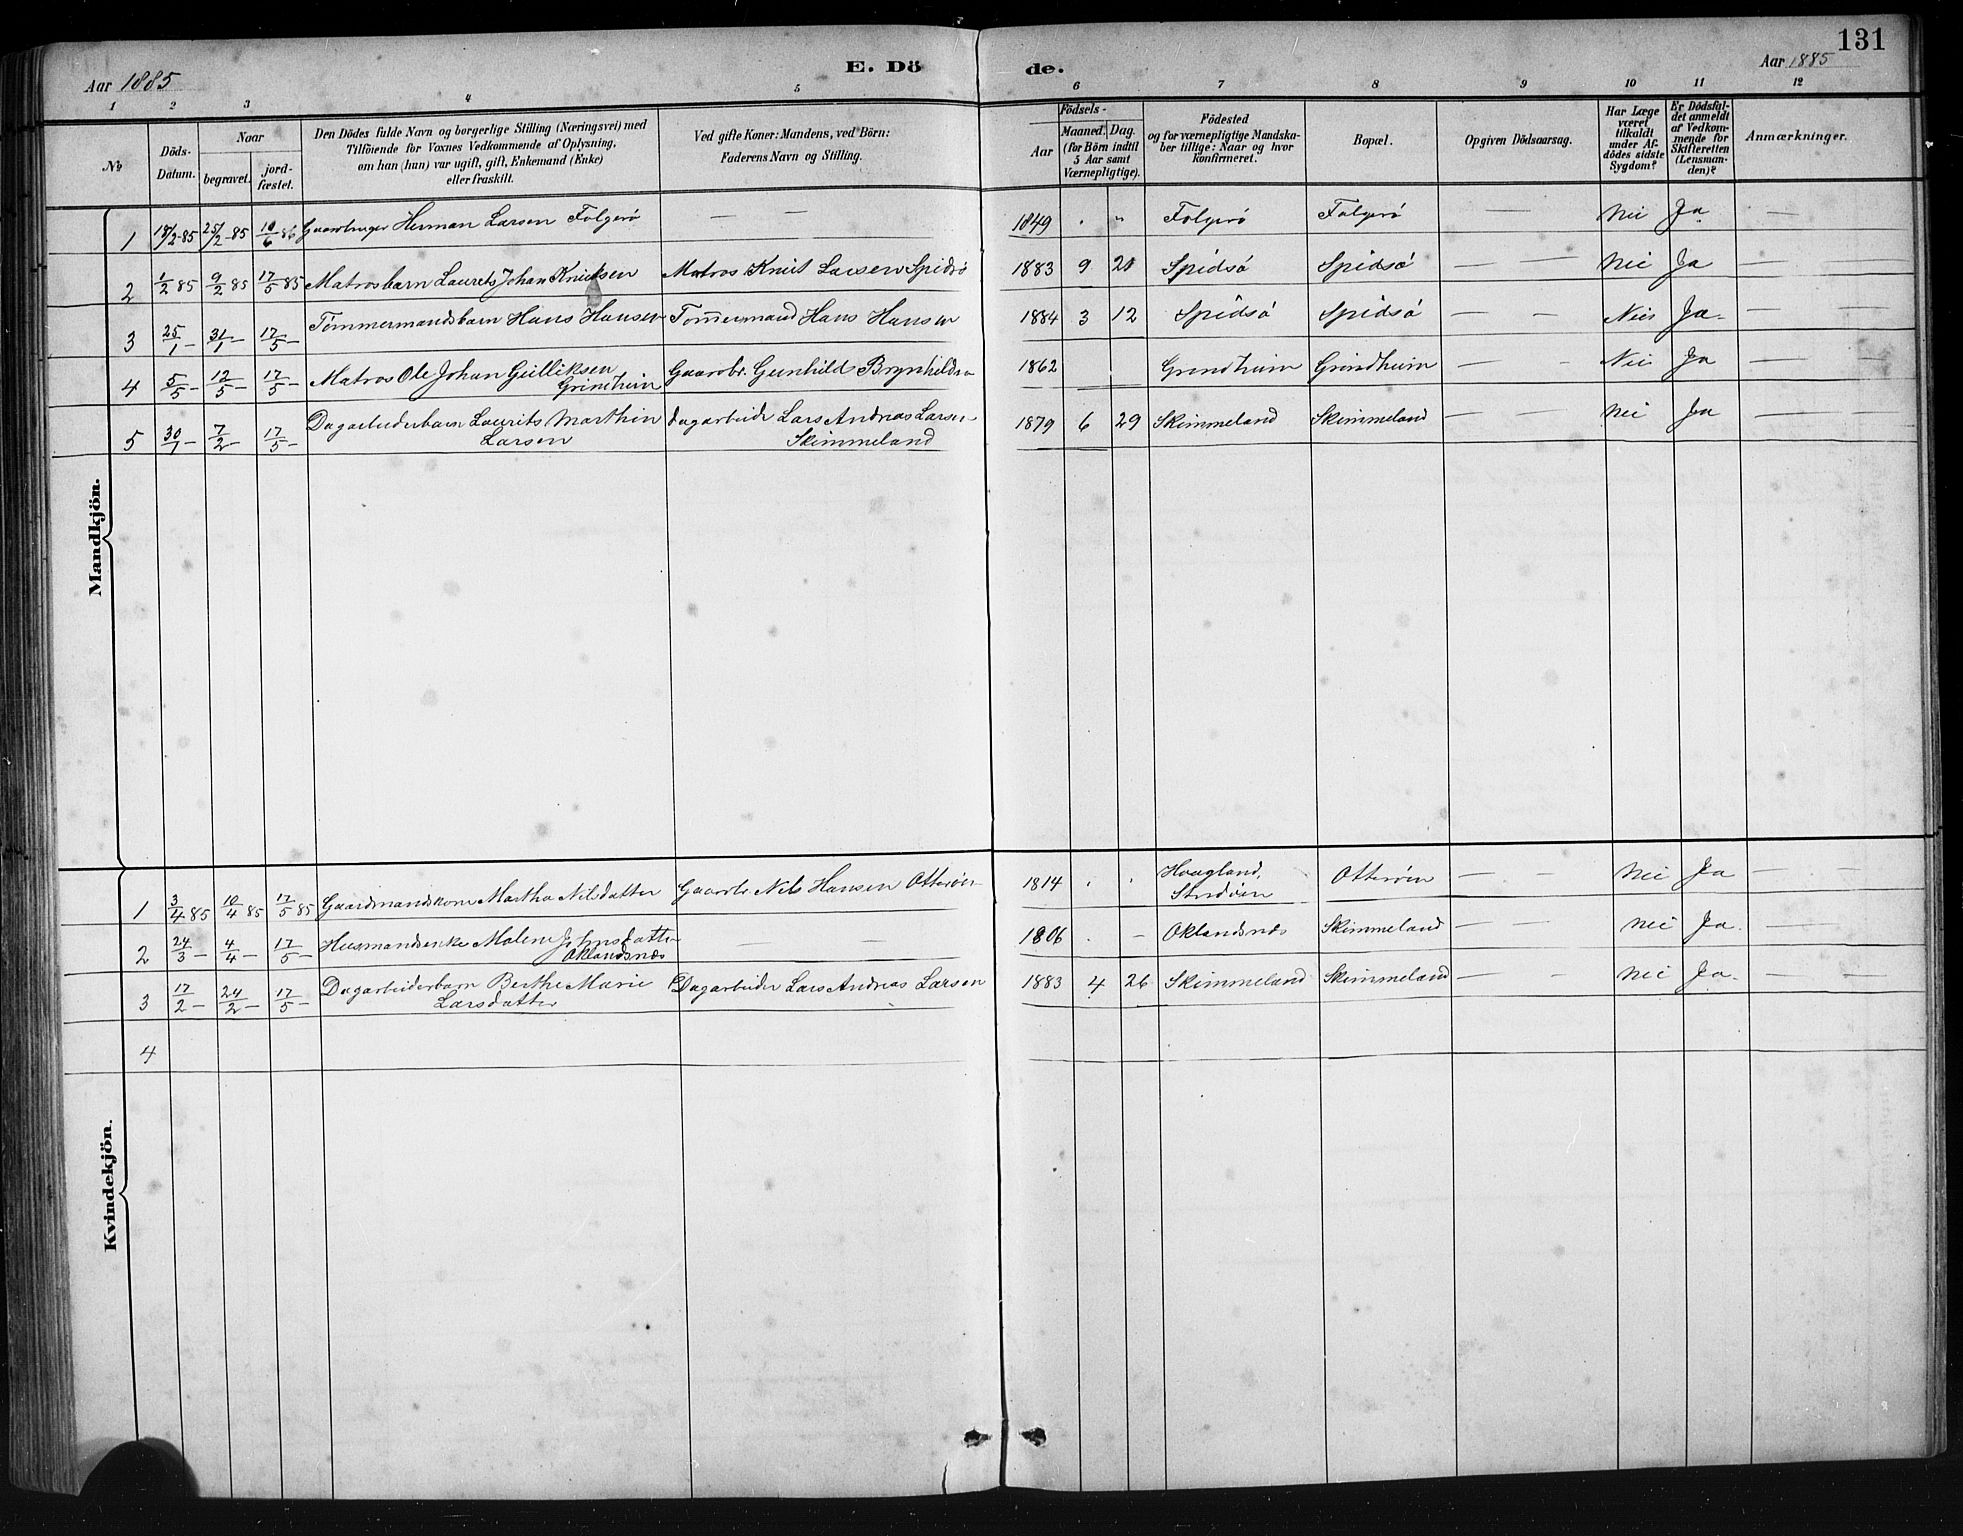 131
Aar 1885
E. Dö
de.
Aar 1885
1 2 3 4 5 6 7 8 9 10 11 12
No
Döds-
Datum.
Naar
begravet.
jord-
fæstet.
Den Dödes fulde Navn og borgerlige Stilling (Næringsvei) med
Tilföiende for Voxnes Vedkommende af Oplysning,
om han (hun) var ugift, gift, Enkemand (Enke)
eller fraskilt.
Ved gifte Koner: Mandens, ved Börn:
Faderens Navn og Stilling.
Födsels-
Aar
Maaned. Dag.
(for Börn indtil
5 Aar samt
Værnepligtige).
Födested
og for værnepligtige Mandska-
ber tillige: Naar og hvor
konfirmeret.
Bopæl.
Opgiven Dödsaarsag.
Har Læge
været
tilkaldt
under Af-
dödes sidste
Sygdom?
Er Dödsfal-
det anmeldt
af Vedkom-
mende for
Skifteretten
(Lensman-
den)?
Anmærkninger.
Mandkjön.
1 18/2-85 25/2-85 10/6 86 Gaardbruger Herman Larsen Folgerö — — 1849 . " Folgerö Folgerö — — Nei Ja —
2 1/2 85 9/2 85 17/5 85 Matrosbarn Laurets Johan Knutsen Matros Knut Larsen Spidsö 1883 9 21 Spidsö Spidsö — — Nei Ja —
3 25/1 — 31/1 — 17/5 — Tömmermandsbarn Hans Hansen Tömmermand Hans Hansen 1884 3 12 Spidsö Spidsö — — Nei Ja —
4 5/5 — 12/5 — 17/5 — Matros Ole Johan Gulliksen Gaardbr. Gunhild Brynhildsen 1862 Grindheim Grindheim — — Nei Ja —
Grindheim
5 30/1 — 7/2 — 17/5 — Dagarbeiderbarn Laurits Marthin Dagarbeider Lars Andreas Larsen 1879 6 29 Skimmeland Skimmeland — — Nei Ja —
Larsen Skimmeland
Kvindekjön.
1 3/4 85 10/4 85 17/5 85 Gaardmandskone Martha Nilsdatter Gaardbr Nels Hansen Otteröen 1814 . . Hovgland, Otteröen — — Nei Ja —
Stordöen
2 24/3 — 4/4 — 17/5 — Husmandsenke Malene Johnsdatter — — 1806 . — Oklandsnæs Skimmeland — — Nei Ja —
Oklandsnæs
3 17/2 — 24/2 — 17/5 — Dagarbeiderbarn Berthe Marie Dagarbeider Lars Andreas Larsen 1883 4 26 Skimmeland Skimmeland — — Nei Ja —
Larsdatter
4